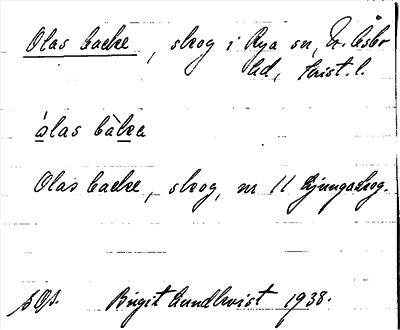 Olas backe, skog i Rya sn, N. Åsbo
hd, Krist. l.
ólas bàkea
Olas backe, skog, nr 11 Ljungaskog.
Birgit Lundkvist 1938.